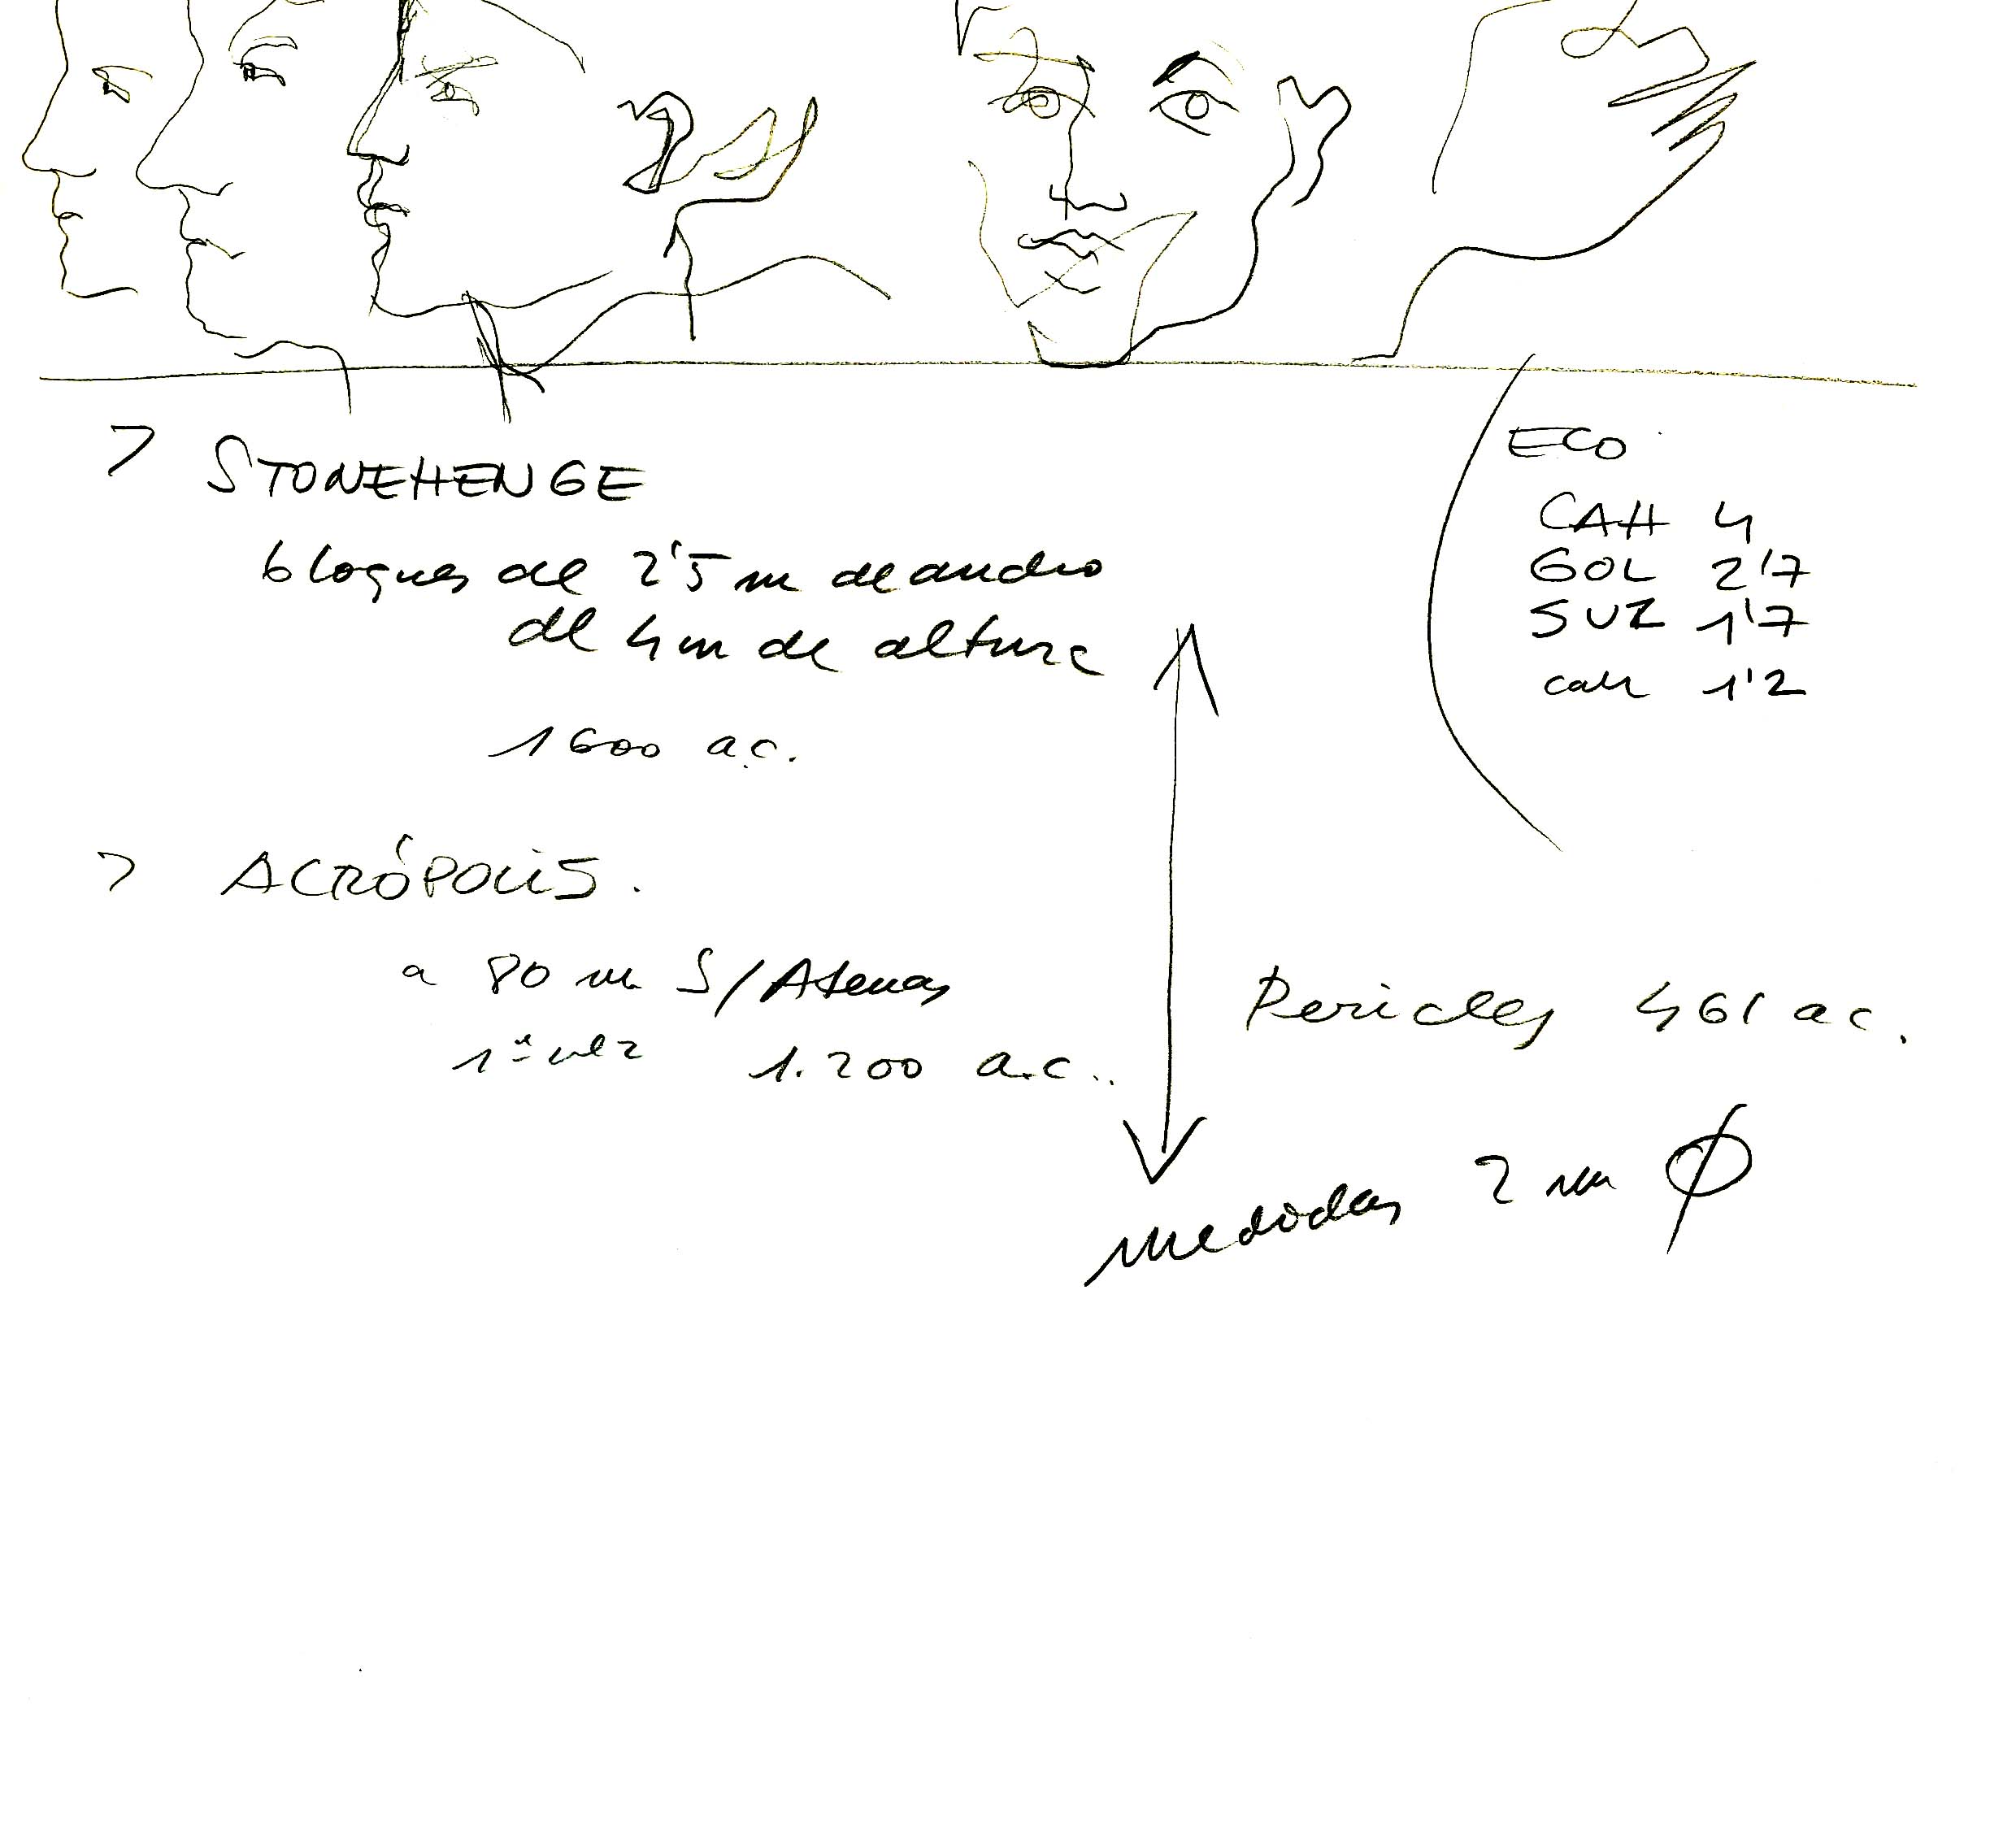 > STONEHENGE
bloques de 2'5 m de ancho
de 4m de altura
1600 a.c.
> ACRÓPOLIS.
a 80 m S/Atenas
1ª vez 1.200 a.c..
ECO
CAH 4
GOL 2'7
SUZ 1'7
1'2
Pericles 461 a c.
medidas 2 m Ø